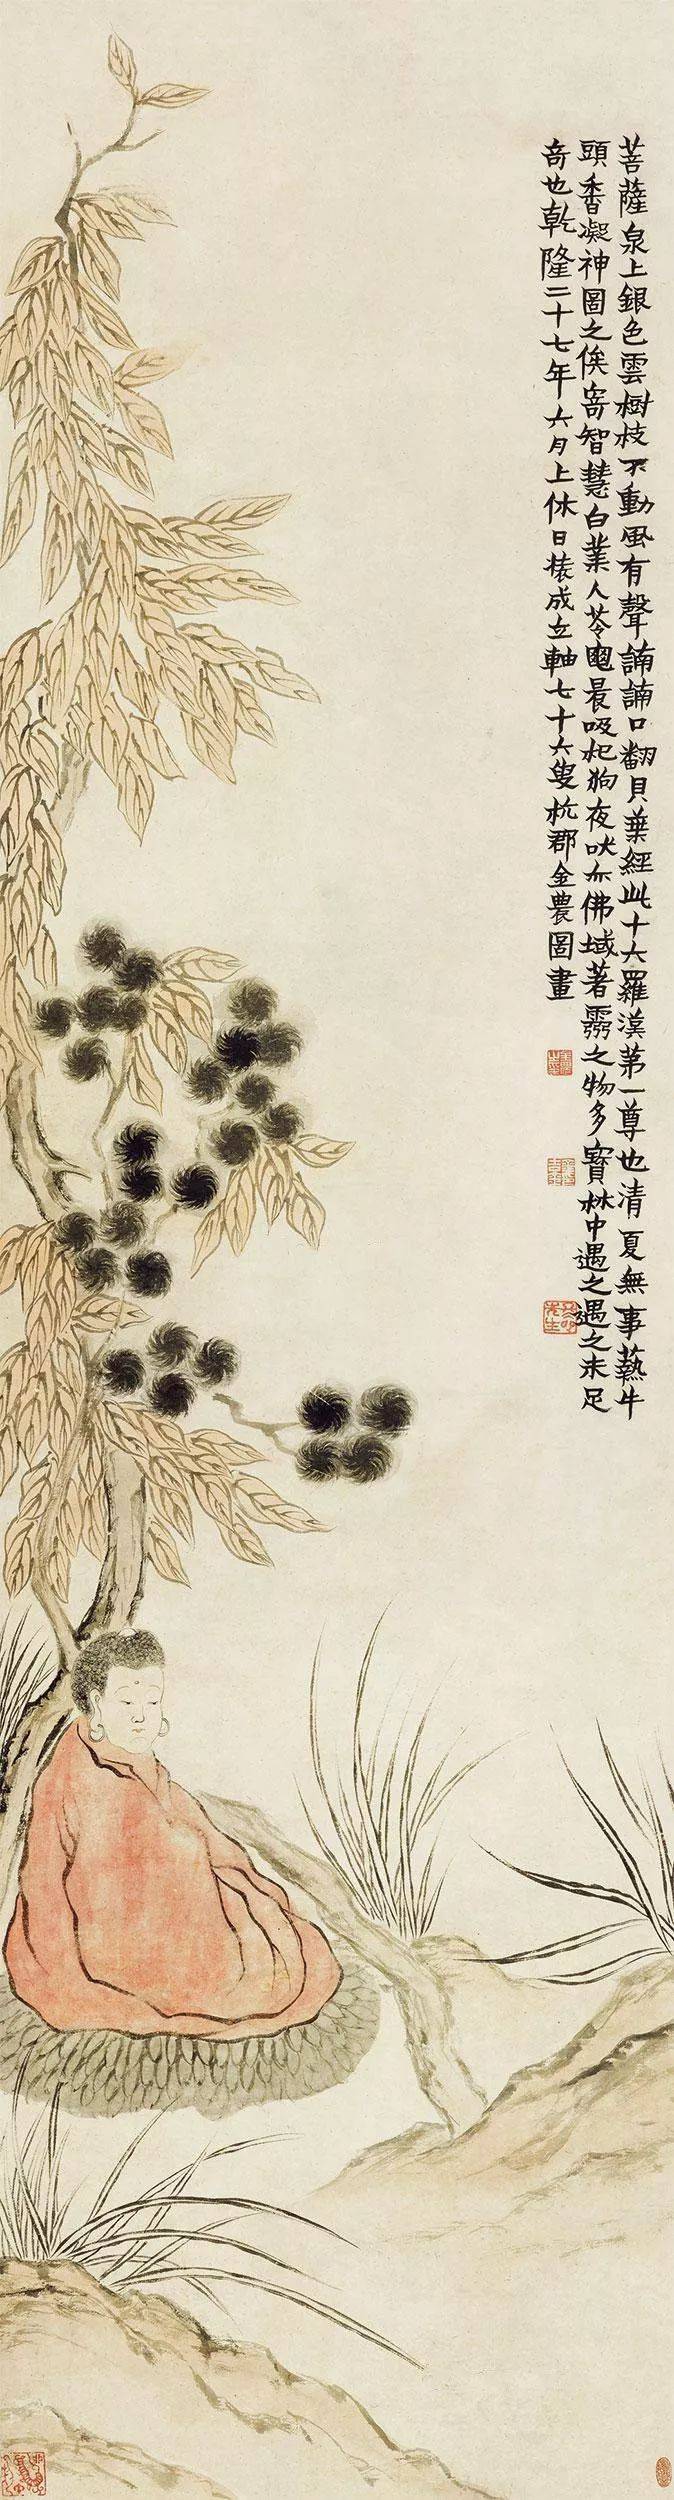 菩薩泉上銀色雲樹枝不動風有聲諵諵口翻貝葉經此十六羅漢苐一尊也清夏無事爇牛
頭香凝神圖之俟寄智慧白業人苓龜晨吸杞狗夜吠亦佛域著靈之物多寶林中遇之遇之未足
奇也乾隆二十七年六月上休日裝成立軸七十六叟杭郡金農圖畫